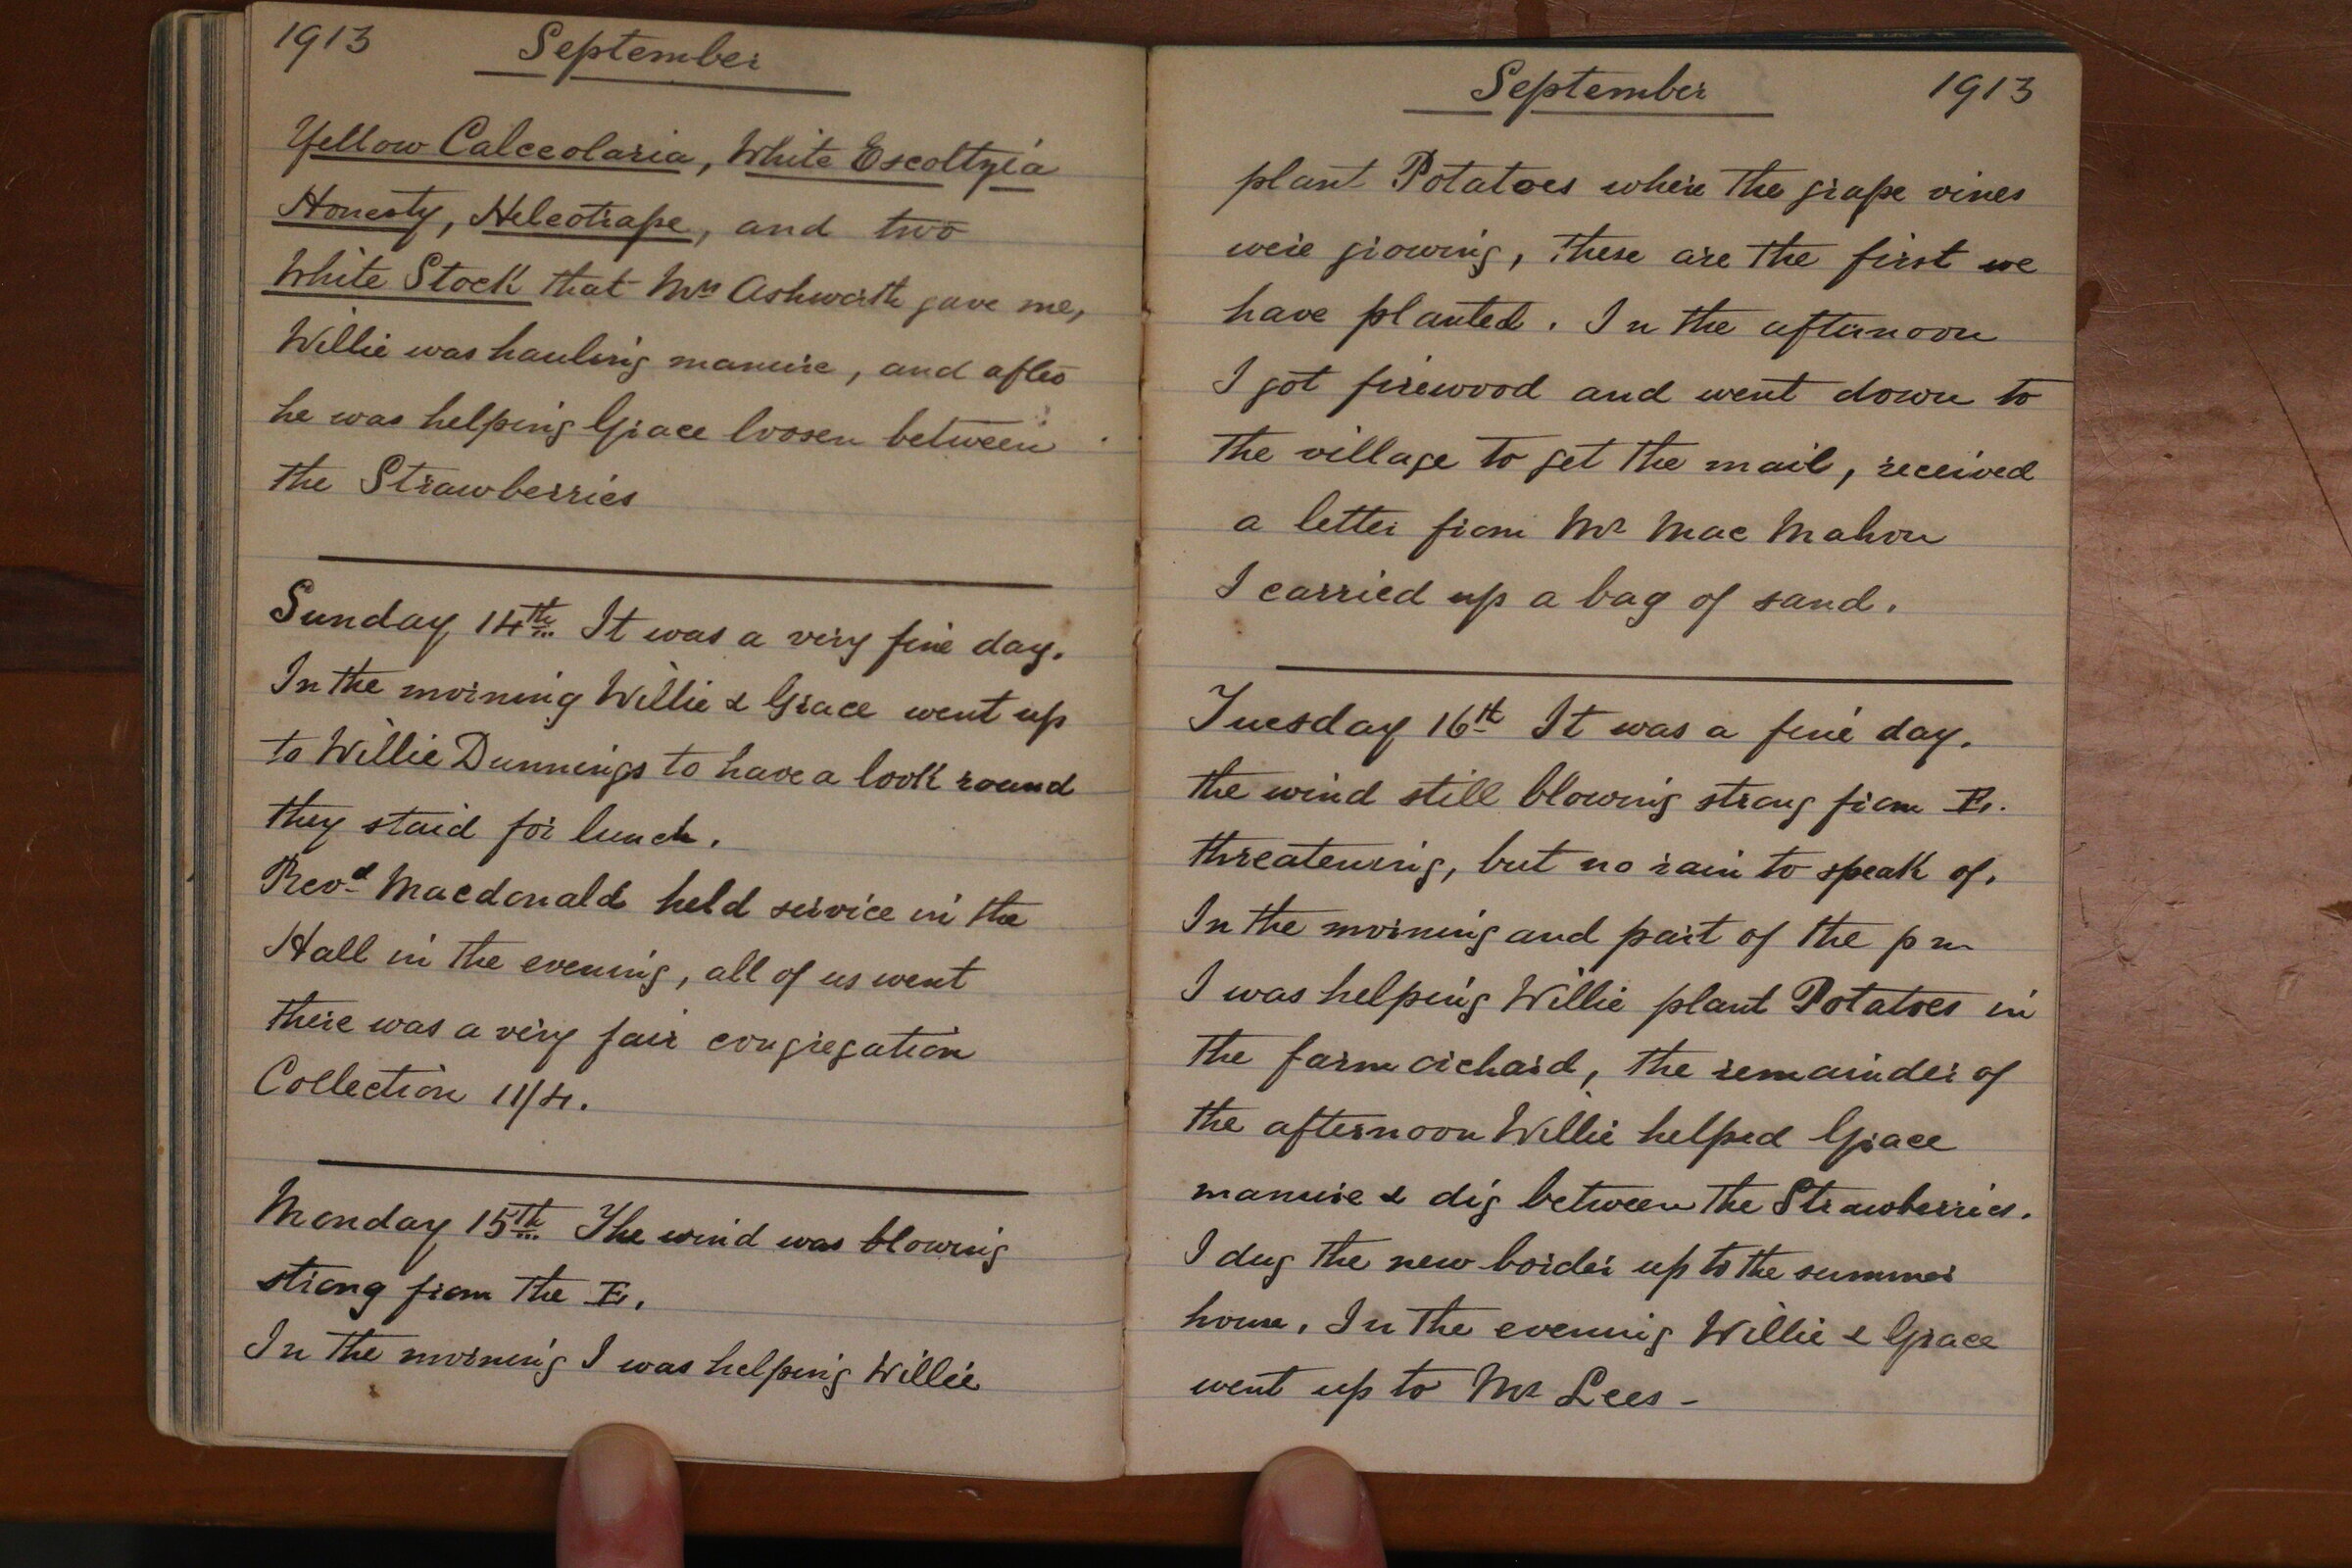 1913 September
Yellow Calceolaria, White Escoltzia
Honesty, Heleotrape, and two
White Stock that Mrs Ashworth gave me,
Willie was hauling manure, and after
he was helping Grace loosen between
the Strawberries
Sunday 14th It was a very fine day.
In the morning Willie & Grace went up
to Willie Dunnings to have a look round
they staid for lunch.
Revd Macdonald held service in the
Hall in the evening, all of us went
there was a very fair congregation
Collection 11/4.
Monday 15th The wind was blowing
strong from the E.
In the morning I was helping Willie
September 1913
plant Potatoes where the grape vines
were growing, these are the first we
have planted. In the afternoon
I got firewood and went down to
the village to get the mail, received
a letter from Mr Mac Mahon
I carried up a bag of sand.
Tuesday 16th It was a fine day.
the wind still blowing strong from E.
threatening, but no rain to speak of.
In the morning and part of the pm
I was helping Willie plant Potatoes in
the farm orchard, the remainder of
the afternoon Willie helped Grace
manure & dig between the Strawberries.
I dug the new border up to the summer
house. In the evening Willie & Grace
went up to Mr Lees -